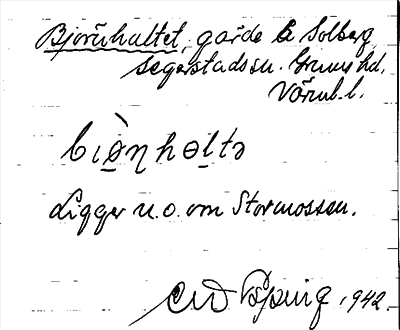 Björnhultet, gärde å Solberg,
Segerstads sn. Grums hd.
Värml. l.
Ligger n.o. om Stormossen.
1942.